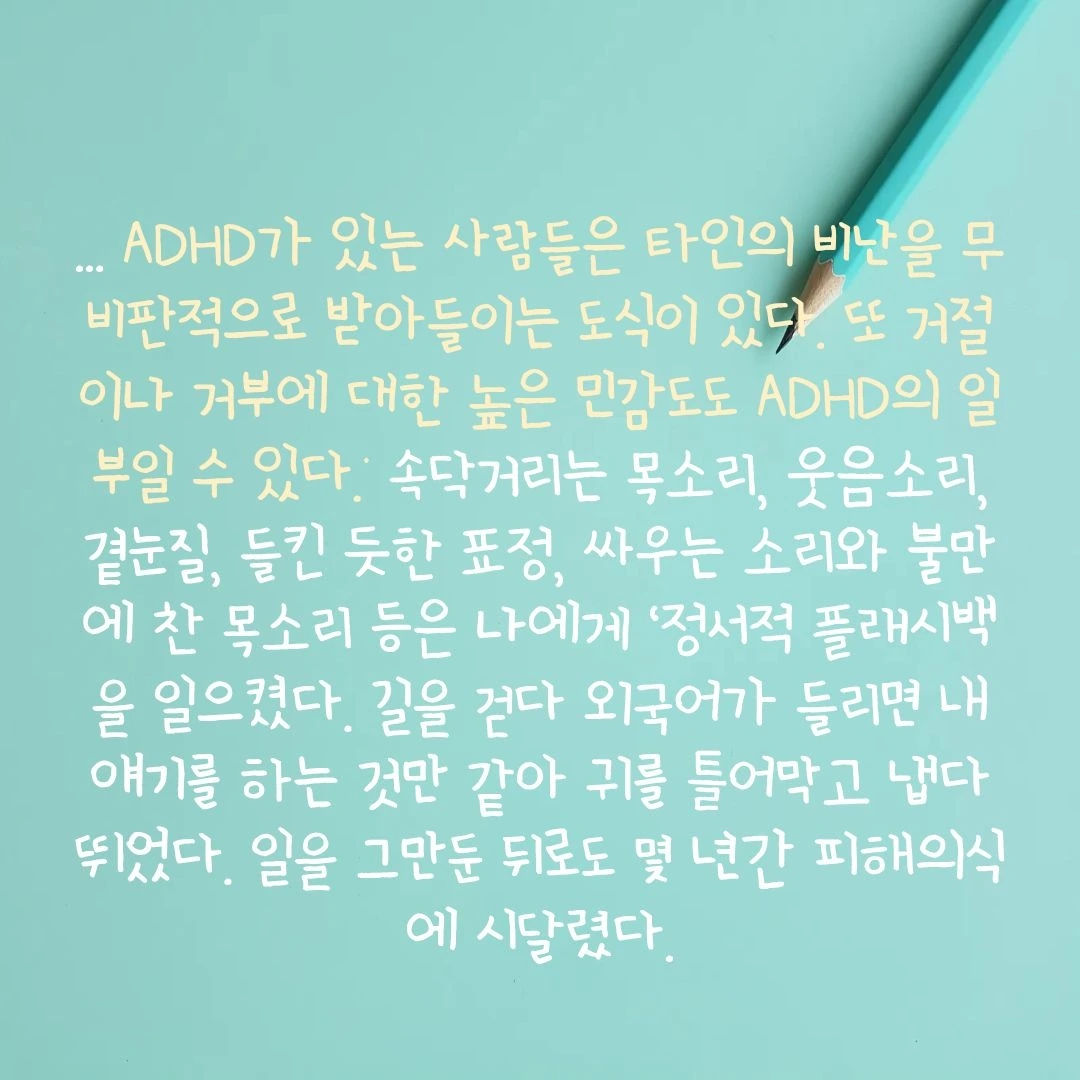 ... ADHD가 있는 사람들은 타인의 비난을 무
비판적으로 받아들이는 도식이 있다. 또 거절
이나 거부에 대한 높은 민감도도 ADHD의 일
부일 수 있다. 속닥거리는 목소리, 웃음소리,
곁눈질, 들킨 듯한 표정, 싸우는 소리와 불만
에 찬 목소리 등은 나에게 ‘정서적 플래시백
을 일으켰다. 길을 걷다 외국어가 들리면 내
얘기를 하는 것만 같아 귀를 틀어막고 냅다
뛰었다. 일을 그만둔 뒤로도 몇 년간 피해의식
에 시달렸다.